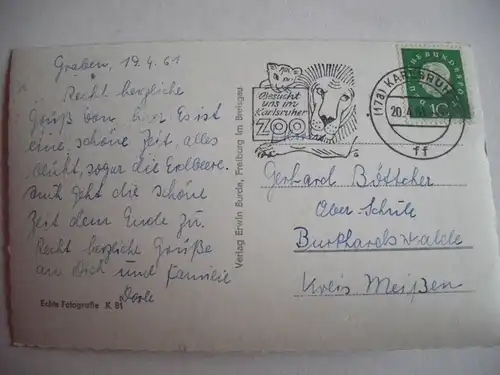 Graben, 19.4.61
Recht herzliche
Grüß von hier. Es ist
eine schöne Zeit, alles
blüht, sogar die Erdbeere.
geht die schöne
Zeit dem Ende zu.
Recht herzliche Grüße
an Dich und Familie
Echte Fotografie K 91
Verlag Erwin Burda, Freiburg im Breisgau
Besucht
uns im
Karlsruher
ZOO
(17a) KARLSRUHE
20.4.
ff
Gerhard Böttcher
Ober-Schule
Burkhardswalde
Kreis Meißen